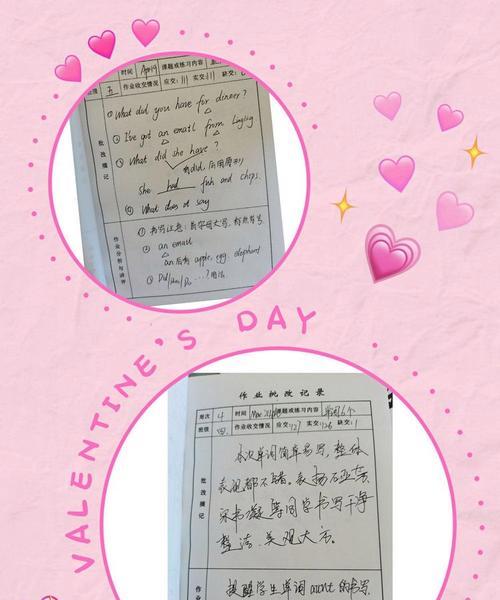 时间 April9 课题或练习内容
班级 五 作业收交情况 应交:111 实交:111 缺交:
批改摘记
① What did you have for dinner?
② I've got an email from Lingling
③ What did she have?
有did, 后用原形
She had fish and chips.
④ What does it say
作业分析与讲评
① 书写注意: 首字母大写, 标点符号.
② an email
an后有 apple, egg. elephant
③ Did/Has/Do ...? 用法.
VALENTINE'S DAY
作业批改记录
周次 4 时间 Mar 课题或练习内容 单词6个
班级 四. 作业收交情况 应交:127 实交:126 缺交:1
批改摘记
本次单词简单易写, 整体
表现都不错. 表扬石亚
宋书凝等同学书写干净
整洁、美观大方.
作
提醒学生单词 month 的书写.